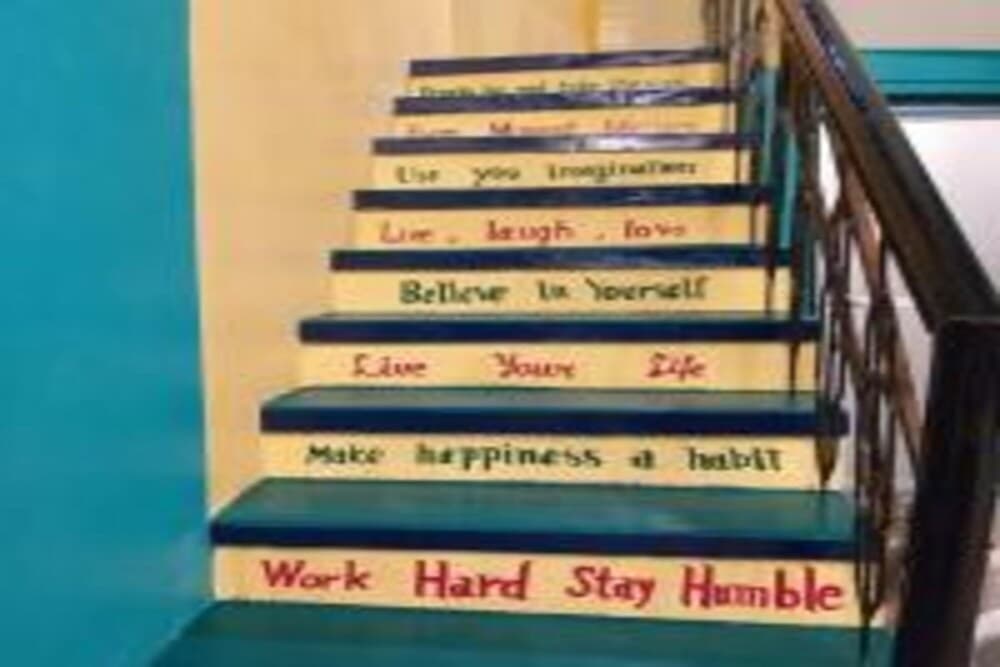 Use you imagination
Live, laugh, love
Believe in Yourself
Live Your Life
Make happiness a habit
Work Hard Stay Humble